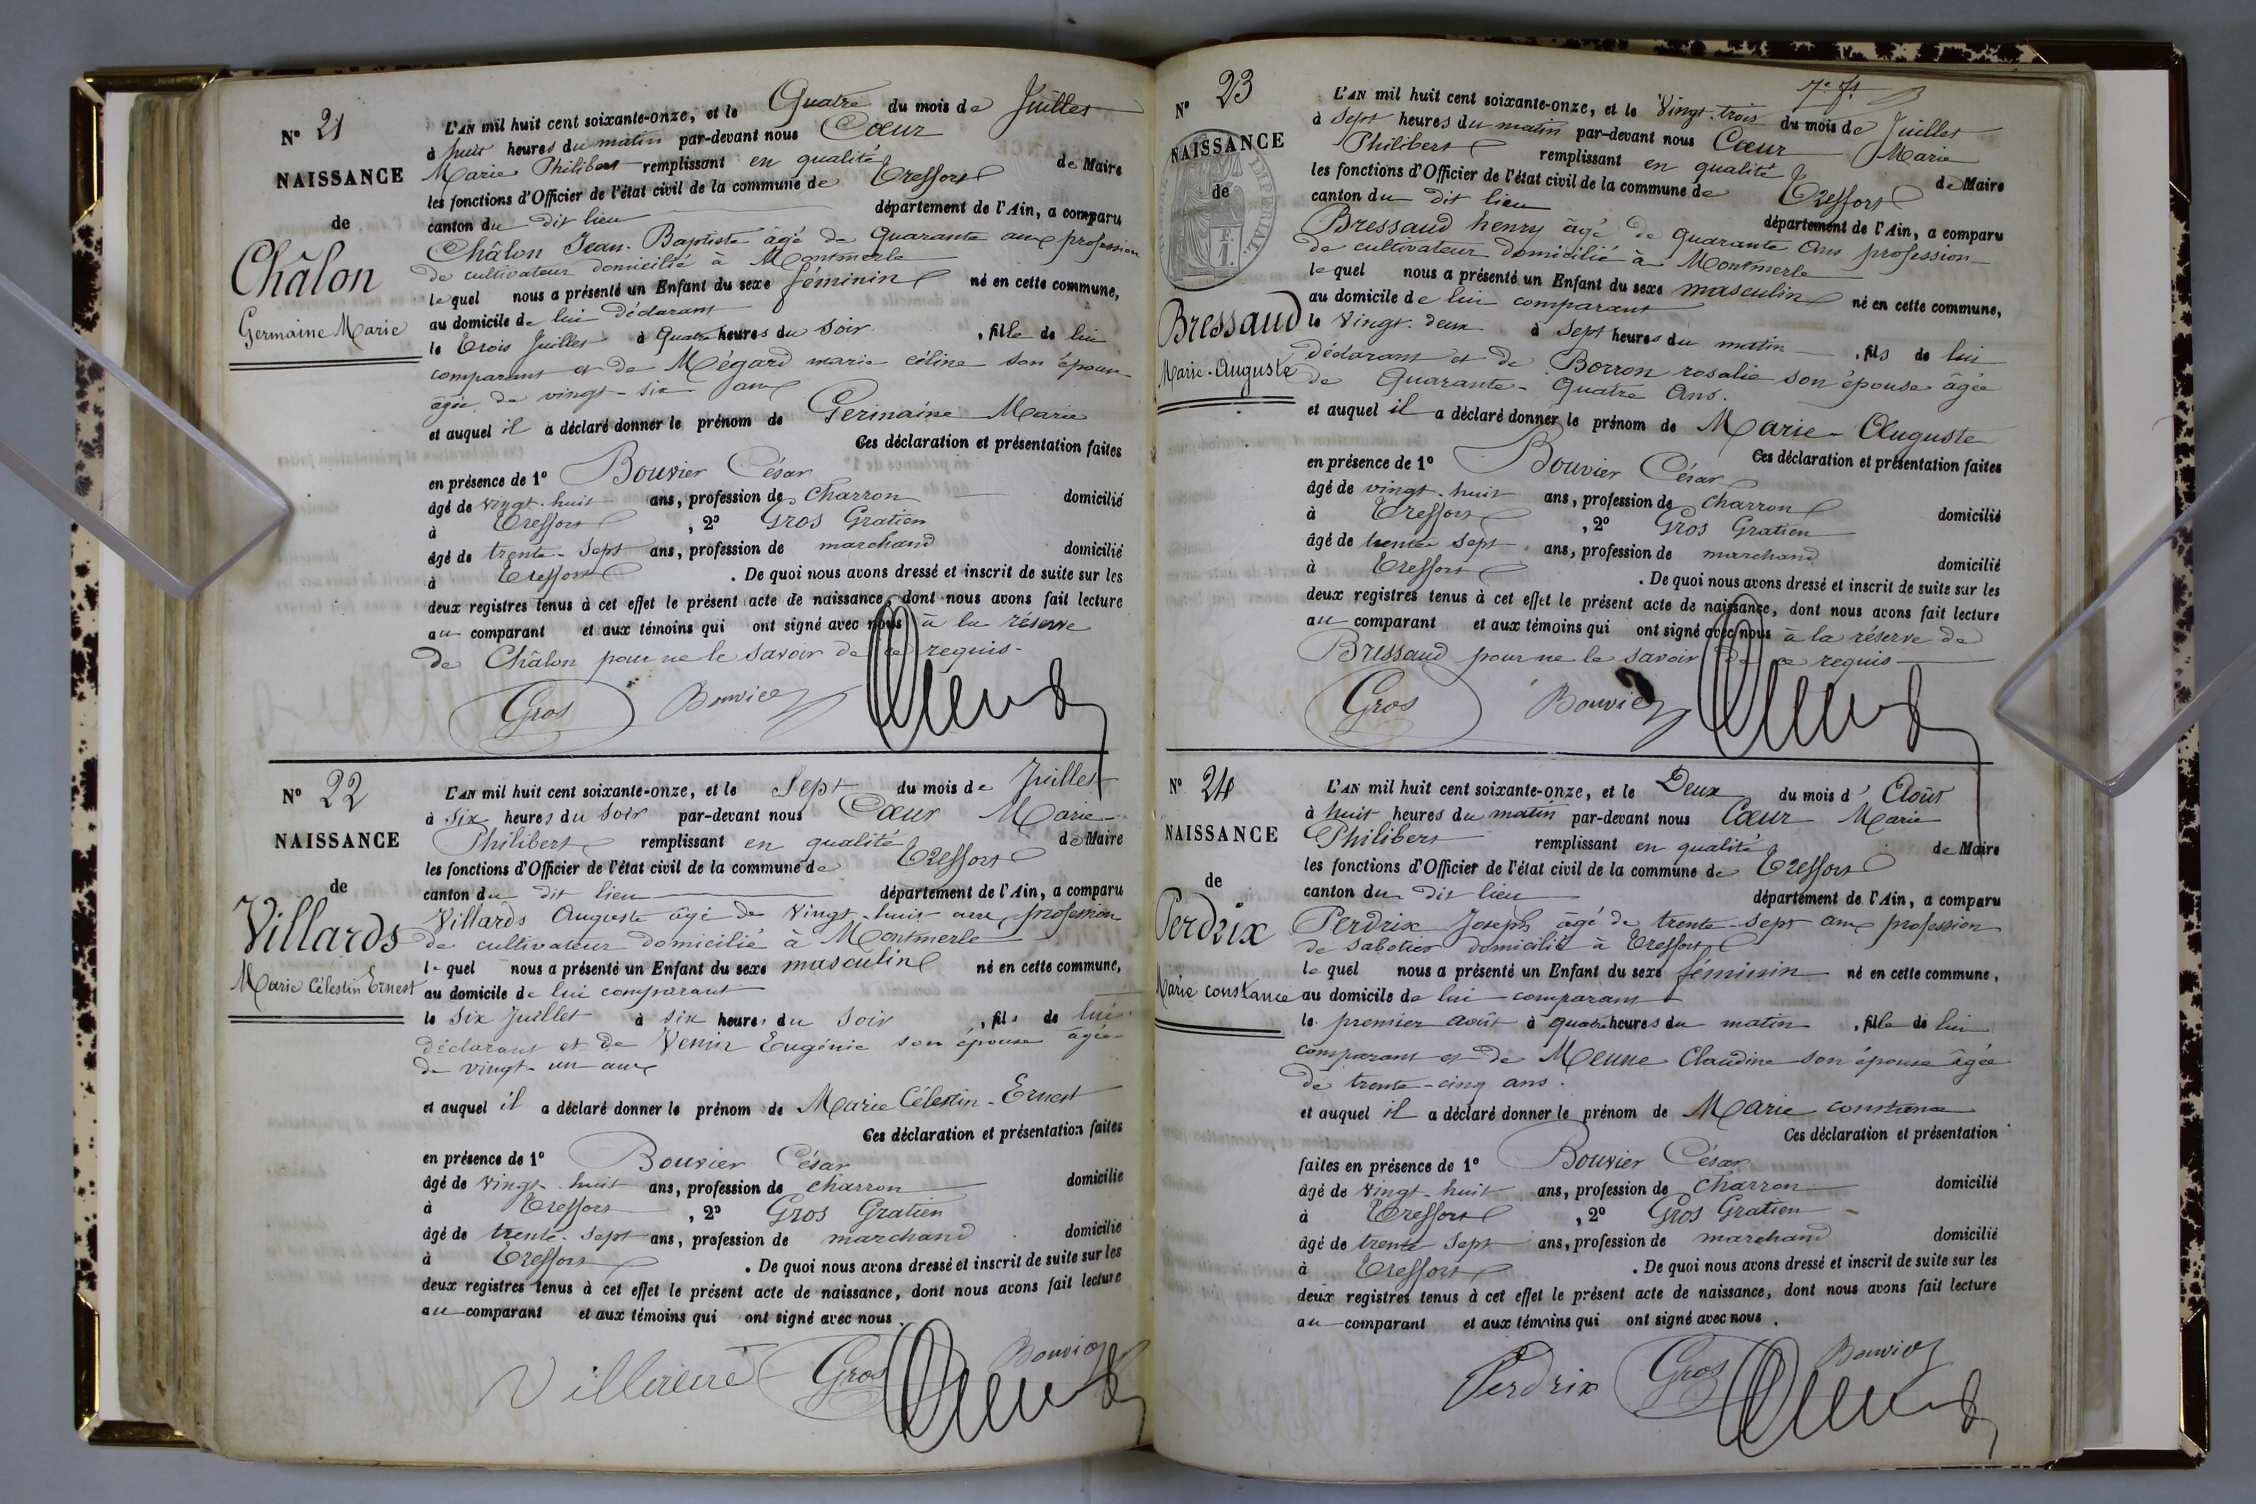 N° 21
NAISSANCE
de
Châlon
Germaine Marie
L'AN mil huit cent soixante-onze, et le Quatre du mois de Juillet
à huit heures du matin par-devant nous Cœur
Marie Philibert remplissant en qualité de Maire
les fonctions d'Officier de l'état civil de la commune de Treffort
canton du dit lieu département de l'Ain, a comparu
Châlon Jean-Baptiste âgé de quarante ans profession
de cultivateur domicilié à Montmerle
lequel nous a présenté un Enfant du sexe féminin né en cette commune,
au domicile de lui déclarant
le trois Juillet à quatre heures du soir, fille de lui
comparant et de Mégard marie céline son épouse
âgée de vingt-six ans
et auquel il a déclaré donner le prénom de Germaine Marie
Ces déclaration et présentation faites
en présence de 1° Bouvier César
âgé de vingt-huit ans, profession de charron domicilié
à Treffort, 2° Gros Gratien
âgé de trente-sept ans, profession de marchand domicilié
à Treffort. De quoi nous avons dressé et inscrit de suite sur les
deux registres tenus à cet effet le présent acte de naissance, dont nous avons fait lecture
au comparant et aux témoins qui ont signé avec nous à la réserve
de Châlon pour ne le savoir de ce requis-
Gros Bouvier Cœur
N° 22
NAISSANCE
de
Villards
Marie Célestin Ernest
L'AN mil huit cent soixante-onze, et le Sept du mois de Juillet
à six heures du soir par-devant nous Cœur Marie
Philibert remplissant en qualité de Maire
les fonctions d'Officier de l'état civil de la commune de Treffort
canton du dit lieu département de l'Ain, a comparu
Villards Auguste âgé de vingt-huit ans profession
de cultivateur domicilié à Montmerle
lequel nous a présenté un Enfant du sexe masculin né en cette commune,
au domicile de lui comparant
le six Juillet à six heures du soir, fils de lui
déclarant et de Eugénie son épouse âgée
de vingt-un ans
et auquel il a déclaré donner le prénom de Marie Célestin-Ernest
Ces déclaration et présentation faites
en présence de 1° Bouvier César
âgé de vingt-huit ans, profession de charron domicilié
à Treffort, 2° Gros Gratien
âgé de trente-sept ans, profession de marchand domicilié
à Treffort. De quoi nous avons dressé et inscrit de suite sur les
deux registres tenus à cet effet le présent acte de naissance, dont nous avons fait lecture
au comparant et aux témoins qui ont signé avec nous.
Gros Cœur Bouvier
N° 23
NAISSANCE
de
Bressaud
Marie-Auguste
L'AN mil huit cent soixante-onze, et le Vingt-trois du mois de Juillet
à sept heures du matin par-devant nous Cœur Marie
Philibert remplissant en qualité de Maire
les fonctions d'Officier de l'état civil de la commune de Treffort
canton du dit lieu département de l'Ain, a comparu
Bressaud henry âgé de quarante ans profession
de cultivateur domicilié à Montmerle
lequel nous a présenté un Enfant du sexe masculin né en cette commune,
au domicile de lui comparant
le vingt-deux à sept heures du matin, fils de lui
déclarant et de Borron rosalie son épouse âgée
de quarante-quatre ans.
et auquel il a déclaré donner le prénom de Marie-Auguste
Ces déclaration et présentation faites
en présence de 1° Bouvier César
âgé de vingt-huit ans, profession de charron domicilié
à Treffort, 2° Gros Gratien
âgé de trente sept ans, profession de marchand domicilié
à Treffort. De quoi nous avons dressé et inscrit de suite sur les
deux registres tenus à cet effet le présent acte de naissance, dont nous avons fait lecture
au comparant et aux témoins qui ont signé avec nous à la réserve de
Bressaud pour ne le savoir de ce requis
Gros Bouvier Cœur
N° 24
NAISSANCE
de
Perdrix
Marie constance
L'AN mil huit cent soixante-onze, et le Deux du mois d'Août
à huit heures du matin par-devant nous Cœur Marie
Philibert remplissant en qualité de Maire
les fonctions d'Officier de l'état civil de la commune de Treffort
canton du dit lieu département de l'Ain, a comparu
Perdrix Joseph âgé de trente-sept ans profession
de sabotier domicilié à Treffort
lequel nous a présenté un Enfant du sexe féminin né en cette commune,
au domicile de lui comparant
le premier août à quatre heures du matin, fille de lui
comparant et de Meune Claudine son épouse âgée
de trente-cinq ans.
et auquel il a déclaré donner le prénom de Marie constance
Ces déclaration et présentation
faites en présence de 1° Bouvier César
âgé de vingt-huit ans, profession de charron domicilié
à Treffort, 2° Gros Gratien
âgé de trente sept ans, profession de marchand domicilié
à Treffort. De quoi nous avons dressé et inscrit de suite sur les
deux registres tenus à cet effet le présent acte de naissance, dont nous avons fait lecture
au comparant et aux témoins qui ont signé avec nous.
Perdrix Gros Cœur Bouvier